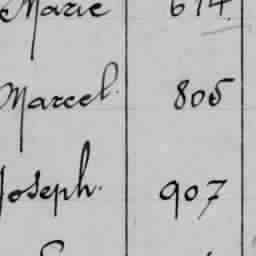 Marie 614.
Marcel. 805
Joseph. 907